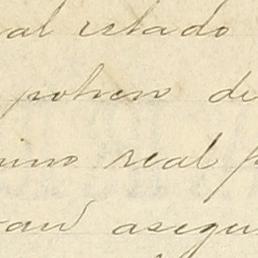 al estado
potren de
mino real p
asegu